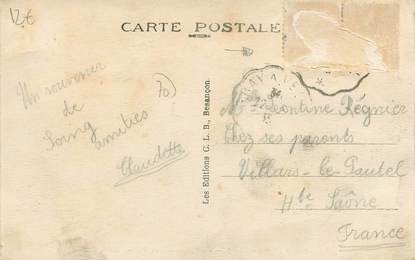 12€
CARTE POSTALE
70
Un souvenir
de
Soing
amitiés
Claudette
Les Editions C. L. B., Besançon.
GRAY A VE
Léontine Régnier
Chez ses parents
Villars-le-Pautel
Hte Saône
France